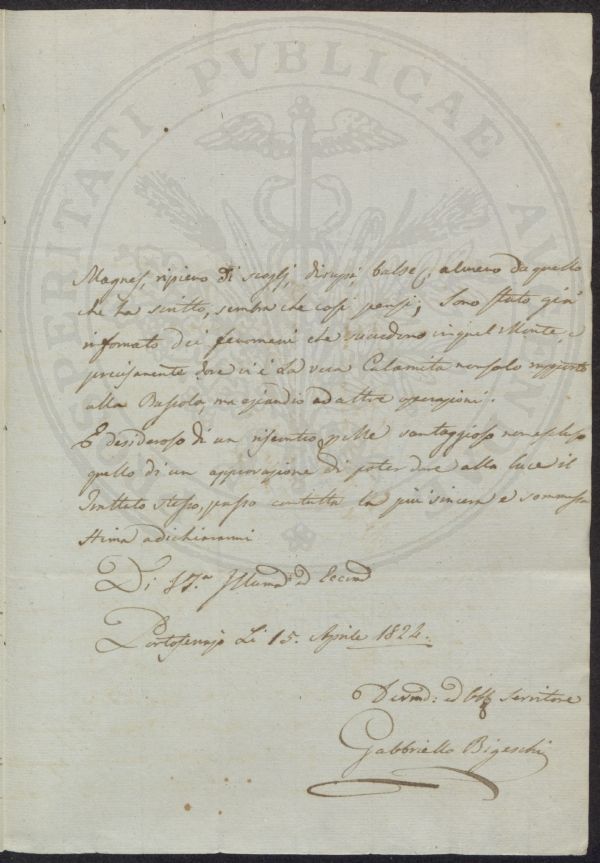 PROSPERITATI PVBLICAE AVGENDAE
Magnes, ripieno di scoglj, dirupi, balse, almeno da quello
che ha scritto, sembra che così pensi; Sono stato già
informato dei fenomeni che succedono in quel Monte, e
precisamente dove vi è La vera Calamita non solo rapporto
alla Bussola, ma eziandio ad altre operazioni.
E desideroso di un riscontro vantaggioso non escluso
quello di un approvazione di poter dare alla luce il
Trattato stesso, passo con tutta la più sincera e sommessa
stima a dichiararmi
Di
Portoferrajo Li 15. Aprile 1824.
ed Servitore
Gabbriello Bigeschi